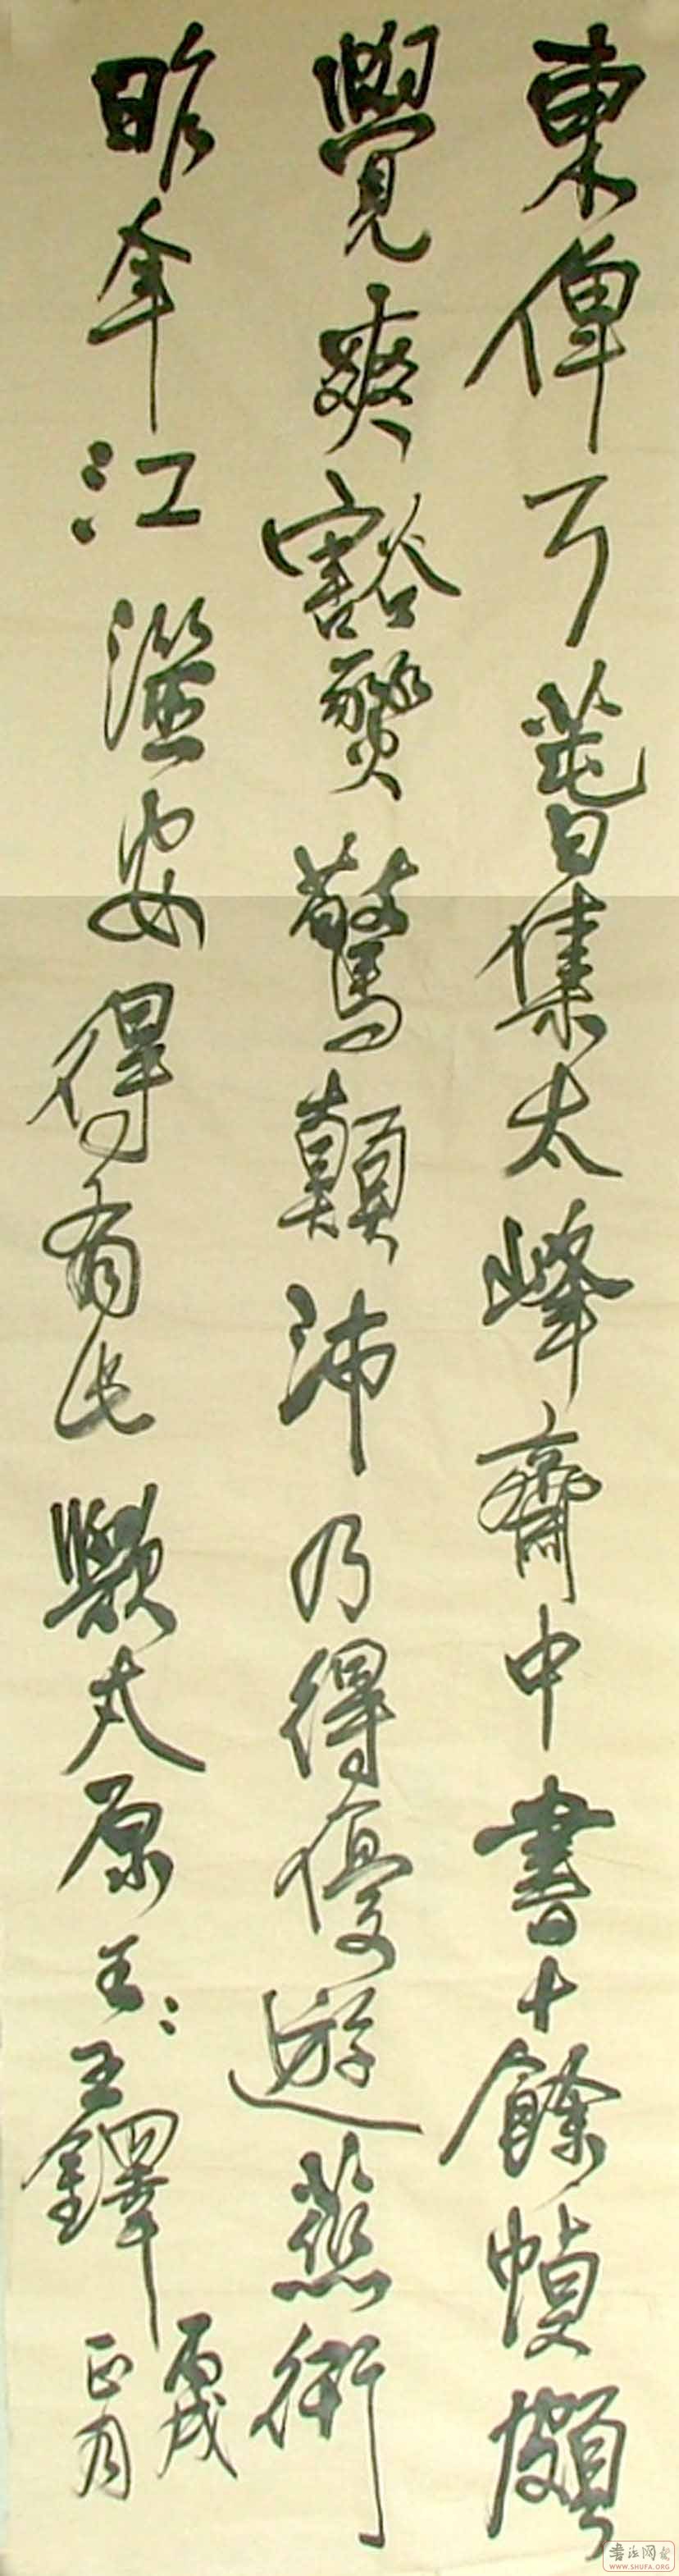 東俾下舊集太峰齋中書十餘幀頗
覺爽豁驚顛沛乃得優遊燕衎
昨年江滋安得有此歟太原王王鐸
丙戌
正月
書法网
WWW.SHUFA.ORG